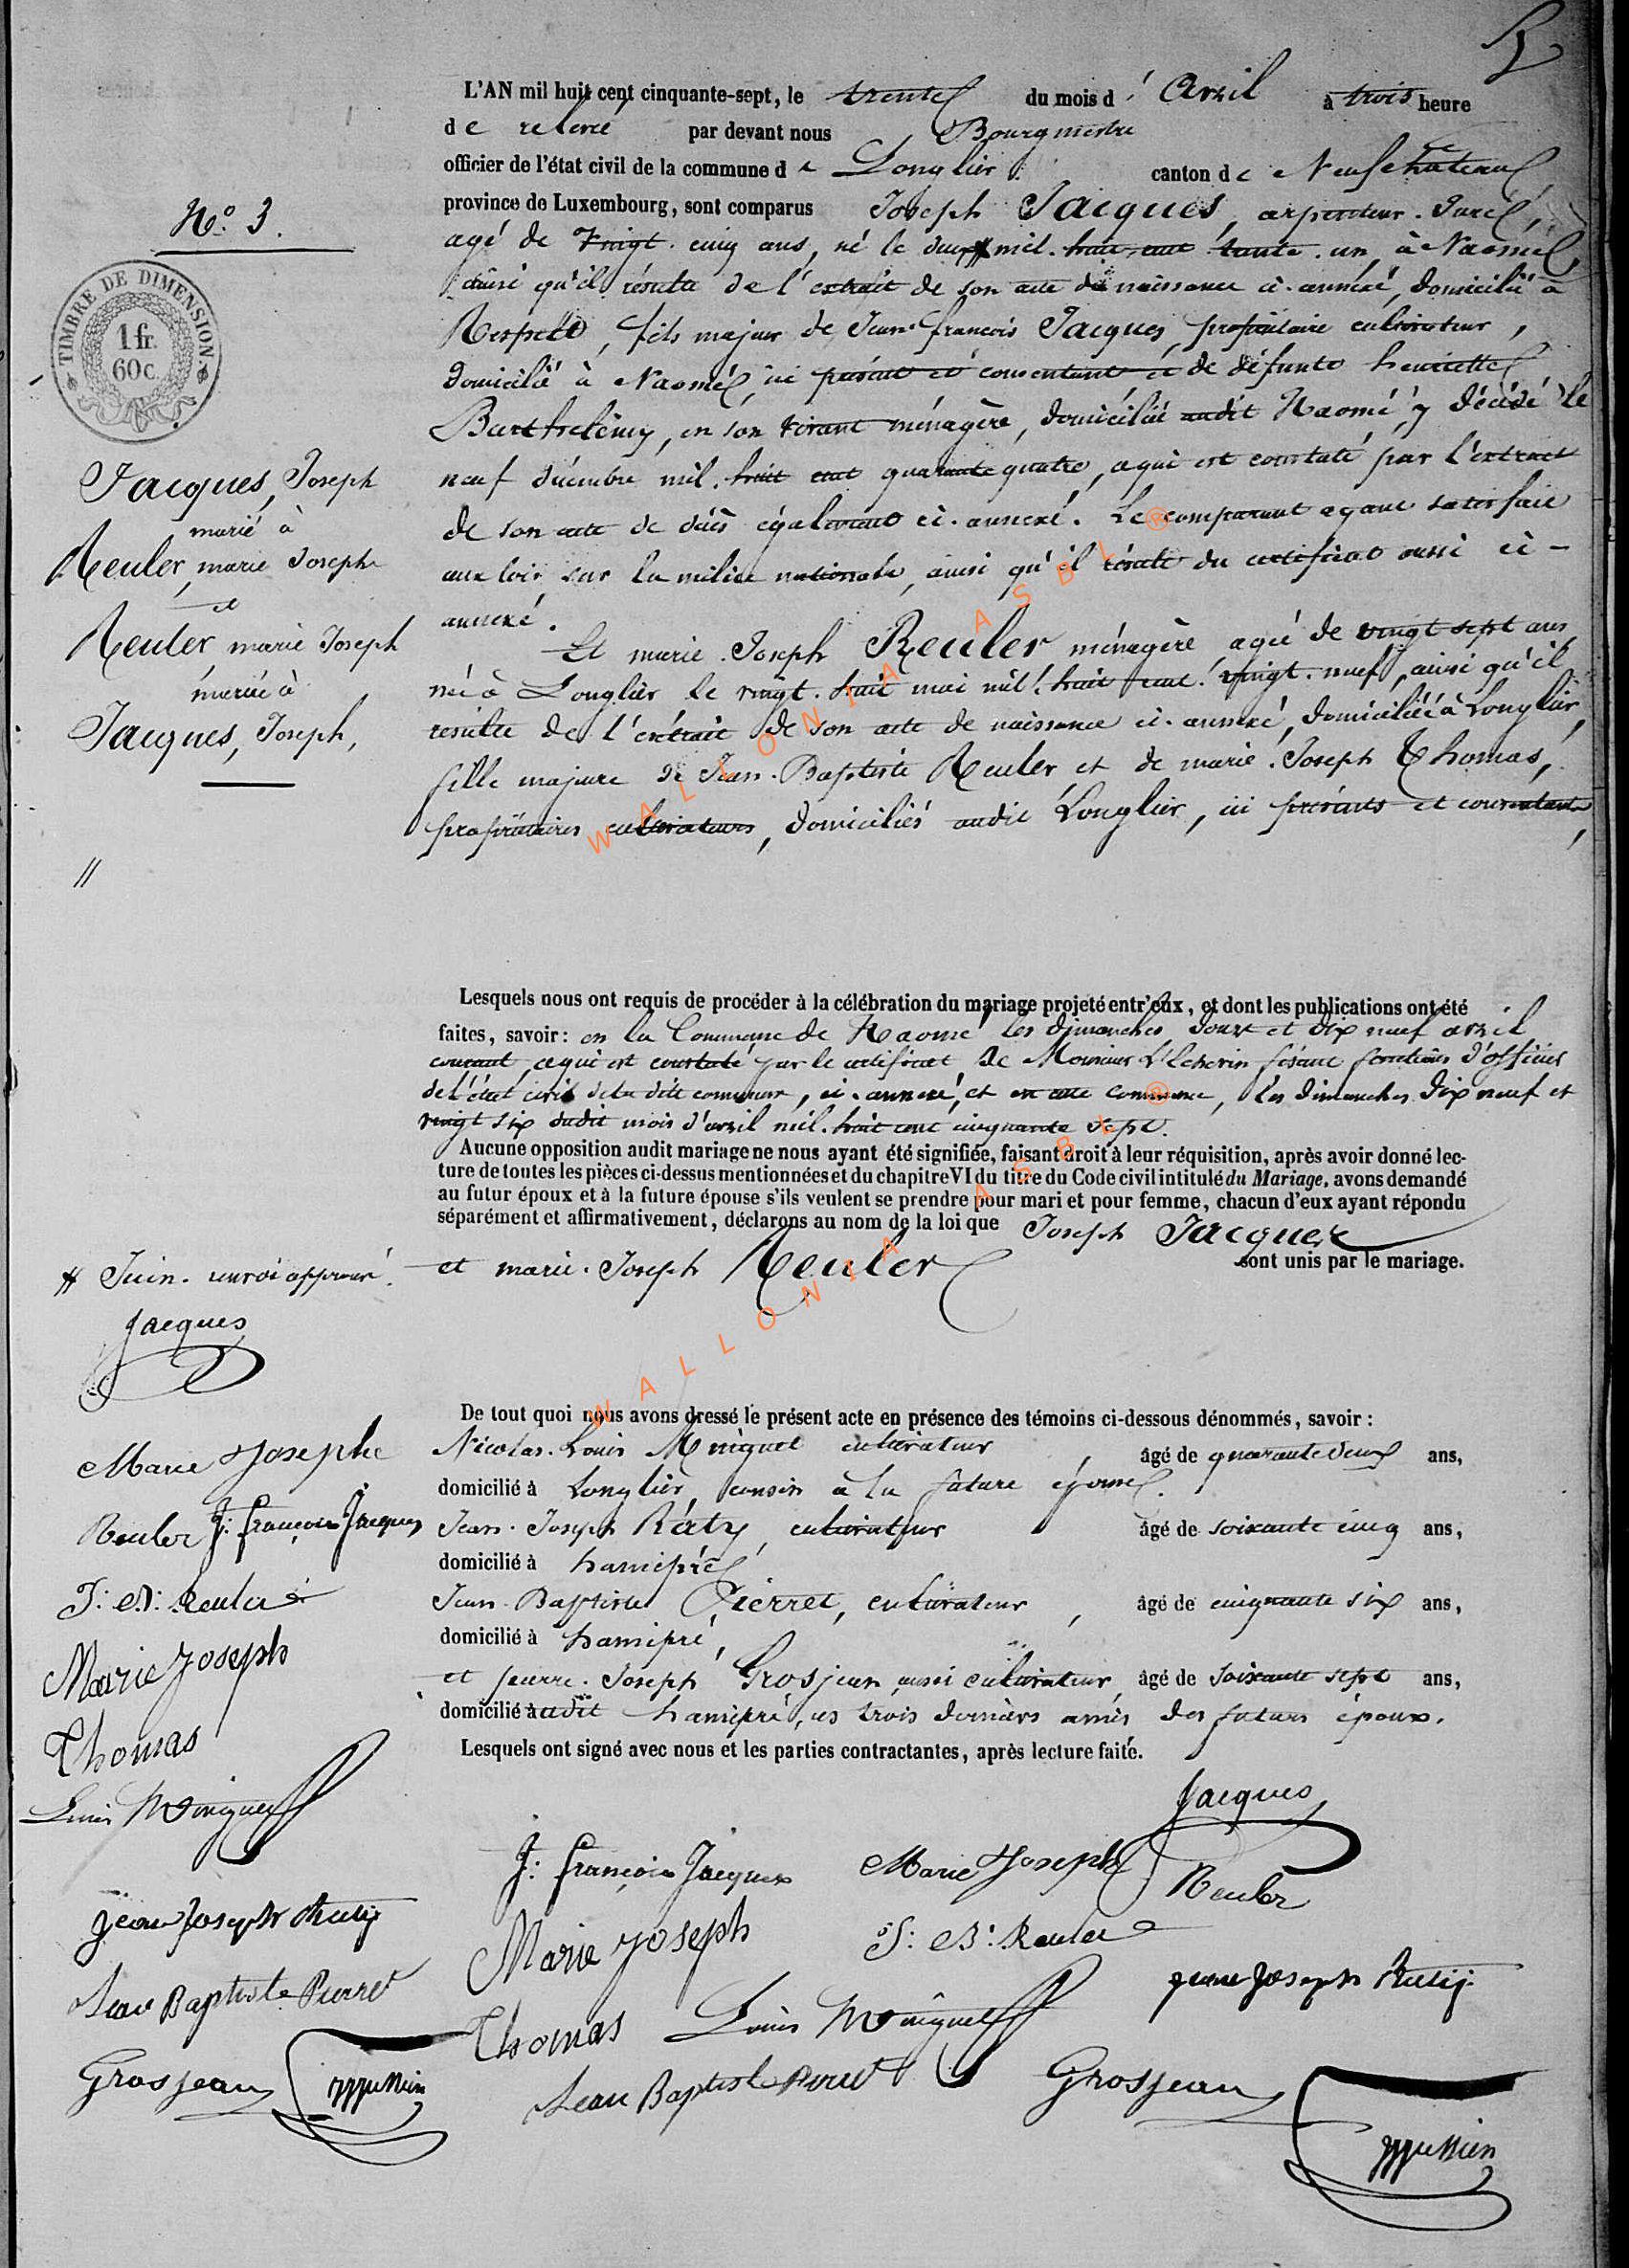 5
L'AN mil huit cent cinquante-sept, le trente du mois d'Avril à trois heure
de relevé par devant nous Bourgmestre
officier de l'état civil de la commune de Longlier canton de Neufchateau
province de Luxembourg, sont comparus Joseph Jacques, arpenteur-Juré,
agé de Vingt-cinq ans, né le deux # mil-huit-cent trente-un, à Naomé,
ainsi qu'il résulte de l'extrait de son acte de naissance ci-annéxé, domicilié à
Respelt, fils majeur de Jean-françois Jacques, propriétaire cultivateur,
domicilié à Naomé, ici présent et consentant et de défunte henriette
Barthelémy, en son vivant ménagère, domiciliée audit Naomé, y décédé le
neuf décembre mil-huit cent quarante quatre, ce qui est constaté par l'extrait
de son acte de décès également ci-annexé. Le comparant ayant satisfait
aux lois sur la milice nationale, ainsi qu'il résulte du certificat aussi ci-
annexé.
Et marie-Joseph Reuler ménagère agée de vingt sept ans
née à Longlier le vingt-huit mai mil-huit cent-vingt-neuf, ainsi qu'il
résulte de l'extrait de son acte de naissance ci-annexé, domiciliée à Longlier,
fille majure de Jean-Baptiste Reuler et de marie-Joseph Thomas,
propriétaires cultivateurs, domiciliés audit Longlier, ici présents et consentants,
N° 3.
TIMBRE DE DIMENSION
1 fr.
60 c.
Jacques, Joseph
marié à
Reuler, marie Joseph
et
Reuler, marie Joseph
mariée à
Jacques, Joseph,
//
Lesquels nous ont requis de procéder à la célébration du mariage projeté entr'eux, et dont les publications ont été
faites, savoir: en la Commune de Naomé les dimanches douze et dix neuf avril
courant, ce qui est constaté par le certificat de Monsieur fésant fonctions d'officier
de l'état civil de la dite commune, ci-annexé, et en cette commune, les dimanches dix neuf et
vingt six dudit mois d'avril mil-huit cent cinquante sept.
Aucune opposition audit mariage ne nous ayant été signifiée, faisant droit à leur réquisition, après avoir donné lec-
ture de toutes les pièces ci-dessus mentionnées et du chapitre VI du titre du Code civil intitulé du Mariage, avons demandé
au futur époux et à la future épouse s'ils veulent se prendre pour mari et pour femme, chacun d'eux ayant répondu
séparément et affirmativement, déclarons au nom de la loi que Joseph Jacques
et marie-Joseph Reuler sont unis par le mariage.
# Juin-renvoi approuvé.
Jacques
De tout quoi nous avons dressé le présent acte en présence des témoins ci-dessous dénommés, savoir:
Nicolas-Louis Minguet cultivateur, âgé de quarante deux ans,
domicilié à Longlier, cousin à la future épouse.
Jean-Joseph Raty, cultivateur âgé de soixante cinq ans,
domicilié à hamipré,
Jean-Baptiste Pierret, cultivateur, âgé de cinquante six ans,
domicilié à hamipré,
et pierre-Joseph Grosjean, aussi cultivateur, âgé de soixante sept ans,
domicilié audit hamipré, ces trois derniers amis des futurs époux.
Lesquels ont signé avec nous et les parties contractantes, après lecture faite.
Marie Josephe
Reuler J: François Jacques
J: B: Reuler
Marie Joseph
Thomas
Louis Minguet
jean Joseph Ratij
Jean Baptiste Pierret
Grosjean
Jacques
J: François Jacques Marie Joseph Reuler
Marie Joseph J: B: Reuler
jean Joseph Ratij
Thomas Louis Minguet
Jean Baptiste Pierret Grosjean
WALLONIA ASBL ®
WALLONIA ASBL ®